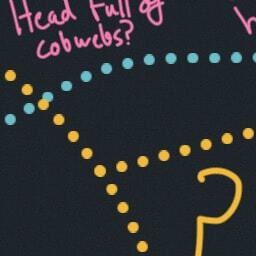 Head Full of
cobwebs?
?